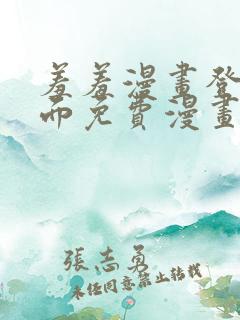 羞羞漫畫登
面免費漫畫
張志勇
未任同意禁止转载